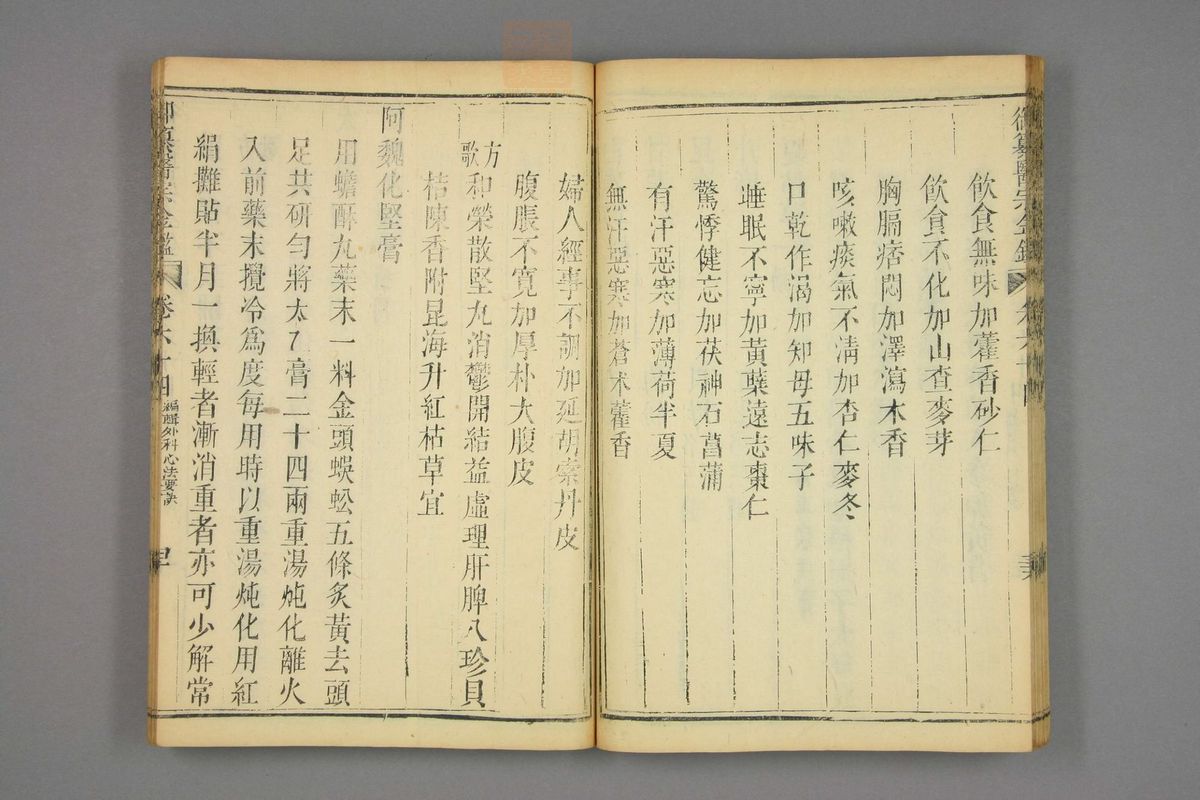 飲食無味加藿香砂仁
飲食不化加山查麥芽
胸膈痞悶加澤瀉木香
咳嗽痰氣不清加杏仁麥冬
口乾作渴加知母五味子
睡眠不寧加黃蘗遠志棗仁
驚悸健忘加茯神石菖蒲
有汗惡寒加薄荷半夏
無汗惡寒加蒼术藿香
婦人經事不調加延胡索丹皮
腹脹不寬加厚朴大腹皮
方歌
和榮散堅丸消鬱開結益虛理肝脾八珍貝
桔陳香附昆海升紅枯草宜
阿魏化堅膏
用蟾酥丸藥末一料金頭蜈蚣五條炙黃去頭
足共研勻將太乙膏二十四兩重湯炖化離火
入前藥末攪冷爲度每用時以重湯炖化用紅
絹攤貼半月一換輕者漸消重者亦可少解常
御纂醫宗金鑑
卷六十四
編輯外科心法要訣